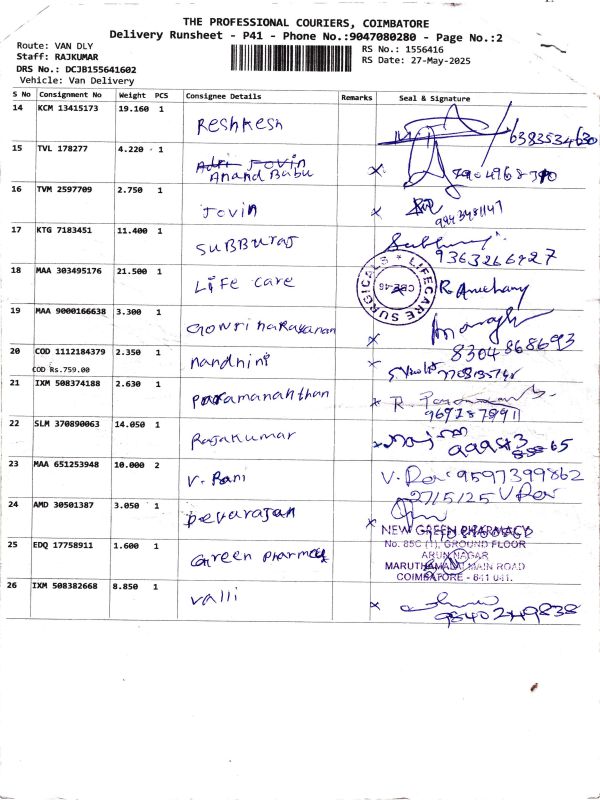 THE PROFESSIONAL COURIERS, COIMBATORE
Delivery Runsheet - P41 - Phone No.:9047080280 - Page No.:2
Route: VAN DLY
RS No.: 1556416
Staff: RAJKUMAR
RS Date: 27-May-2025
DRS No.: DCJB155641602
Vehicle: Van Delivery
S No Consignment No Weight PCS Consignee Details Remarks Seal & Signature
14 KCM 13415173 19.160 1 Reshkesh 6383534630
15 TVL 178277 4.220 1 Jovin
Anand Babu
16 TVM 2597709 2.750 1 Jovin
17 KTG 7183451 11.400 1 SUBBURAJ
9363266927
18 MAA 303495176 21.500 1 Life care LIFECARE SURGICALS * CBE-46
19 MAA 9000166638 3.300 1 Gowri narayanan
8304868693
20 COD 1112184379 2.350 1 nandhini
COD Rs.759.00
21 IXM 508374188 2.630 1 Paramananthan
22 SLM 370890063 14.050 1 Rajakumar
23 MAA 651253948 10.000 2 V. Rani 9597399862
27/5/25
24 AMD 30501387 3.050 1 Devarajan
NEW GREEN PHARMACY
25 EDQ 17758911 1.600 1 Green Pharmacy No. 85C (1), GROUND FLOOR
ARUN NAGAR
MARUTHAMALAI MAIN ROAD
COIMBATORE - 641 041.
26 IXM 508382668 8.850 1 valli
9840249838